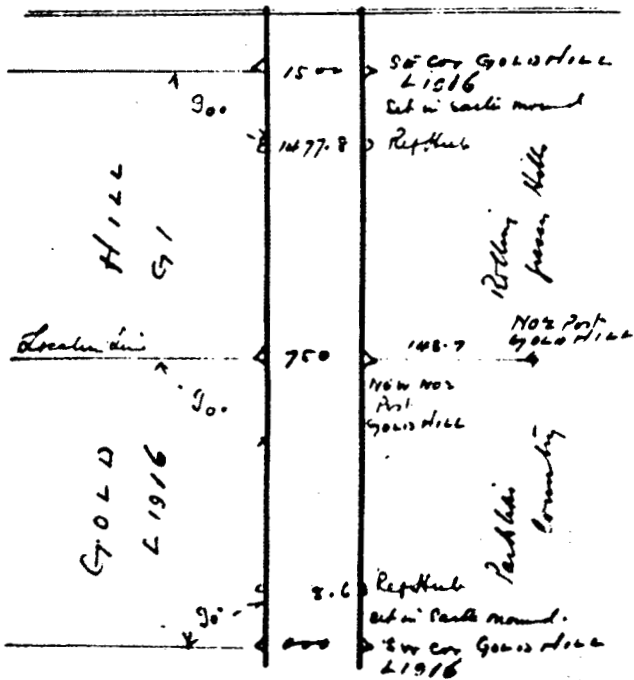 1500
SE Cor GOLD HILL
L 1916
Set in earth mound
90.
1477.8
Ref. Hub
HILL
G1
Rolling
Hills
Location Line
750
148.7
No 2 Post
GOLD HILL
90.
NEW NO2
Post
GOLD HILL
GOLD
L 1916
Parklike
Country
8.6
Ref. Hub
90.
set in earth mound.
000
SW Cor GOLD HILL
L 1916